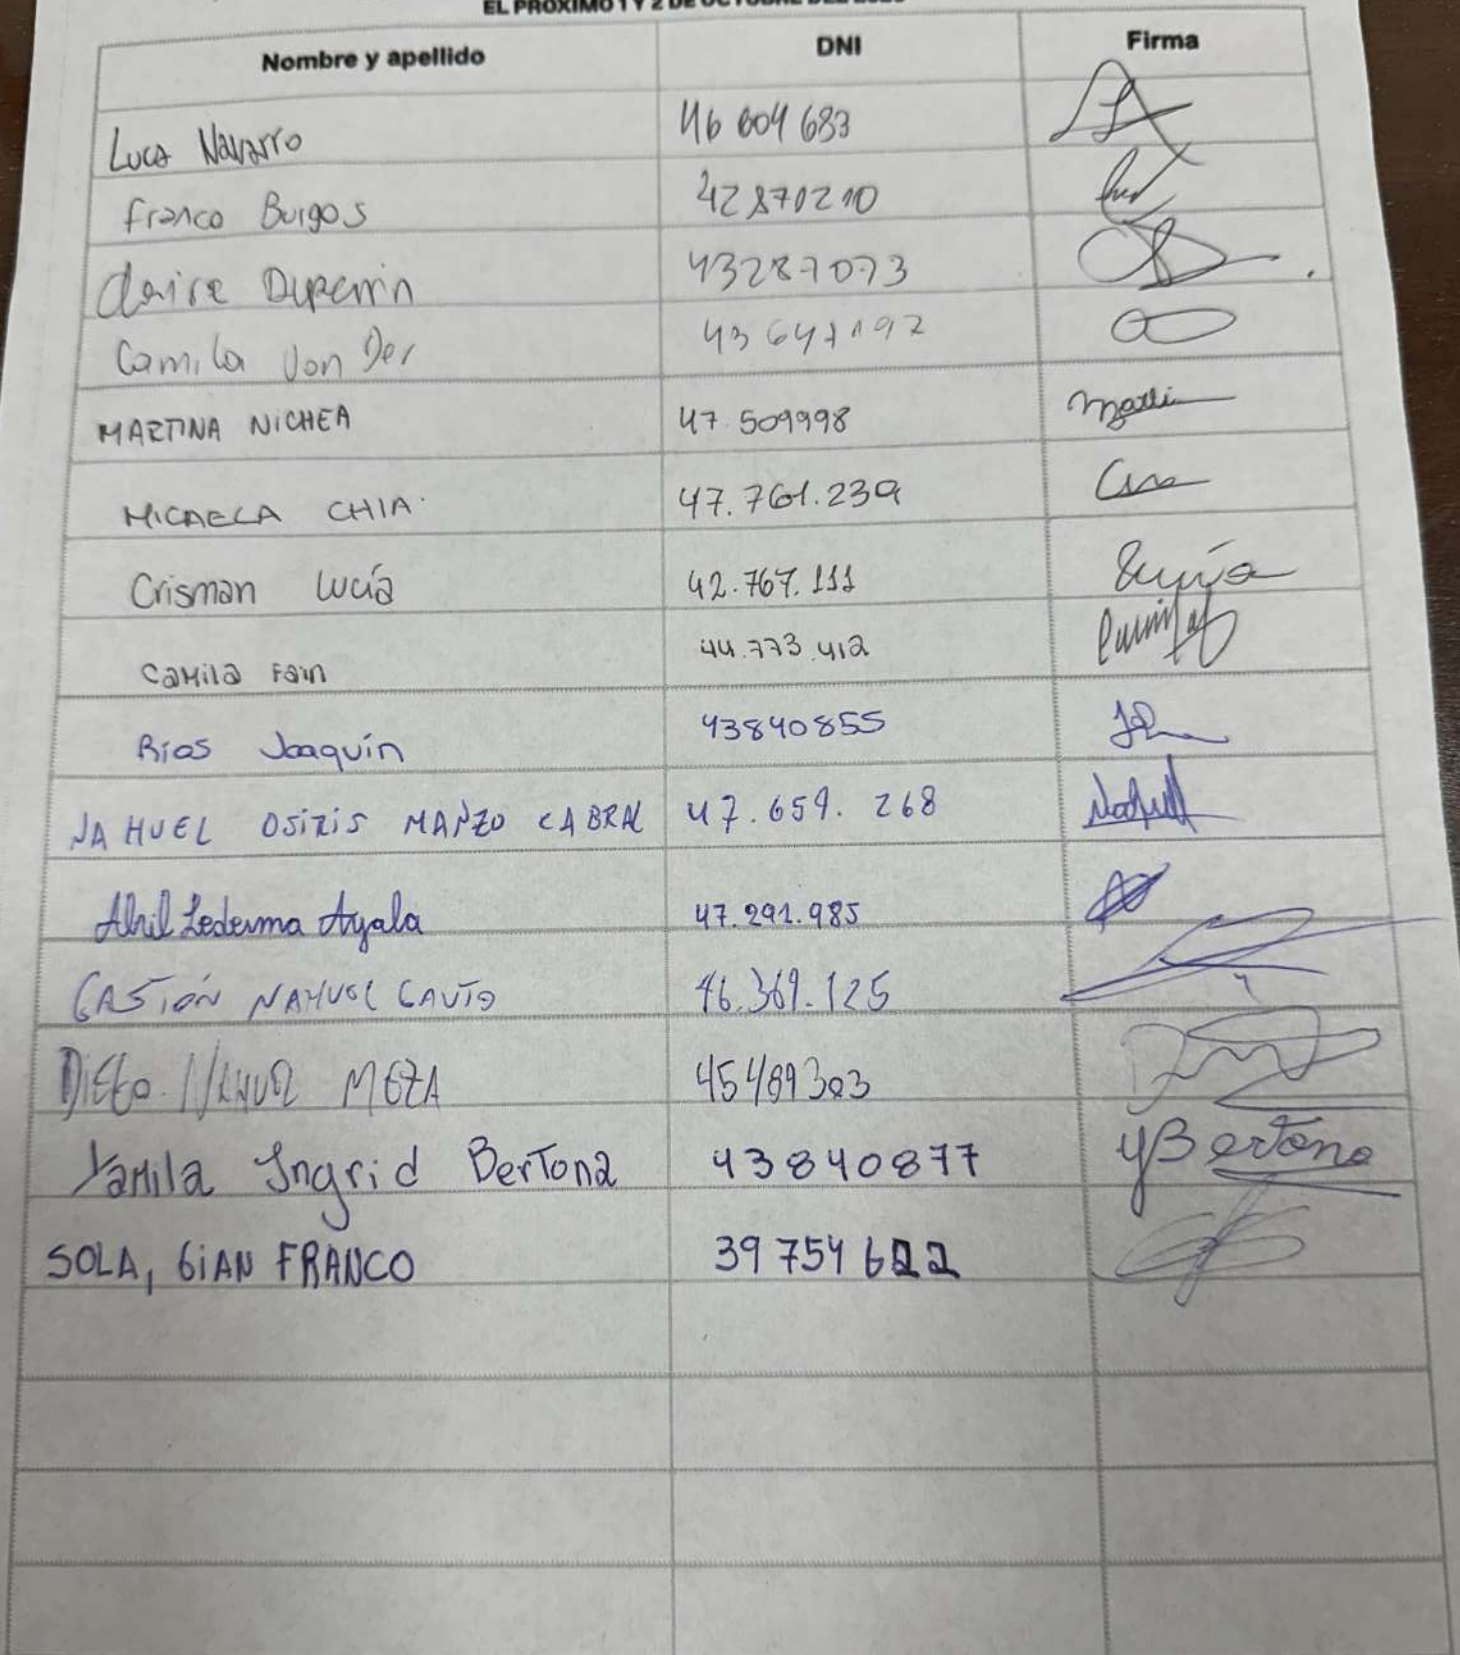 EL PRÓXIMO 1 Y 2 DE OCTUBRE DEL
Nombre y apellido DNI Firma
Luca Navarro 46 604 683
Franco Burgos 42870210
Claire Duperrin 43287073
Camila Von Der 43641192
MARTINA NICHEA 47.509998
MICAELA CHIA 47.761.239
Crisman Lucía 42.767.111
Camila Fain 44.773.412
Rios Joaquín 43840855
NAHUEL OSIRIS MANZO CABRAL 47.659.268
Abril Ledesma Ayala 47.291.985
GASTIÓN NAHUEL GAUTO 46.369.125
DIEGO NAHUEL MEZA 45489303
Yamila Ingrid Bertona 43840877 YBertona
SOLA, GIAN FRANCO 39 754 622